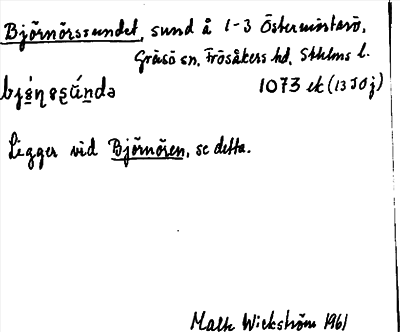 Björnörssundet, sund å 1-3 Östermörtarö,
Gräsö sn, Frösåkers hd, Sthlms l.
1073 ek (13 I 0 j)
Ligger vid Björnören, se detta.
Malte Wickström 1961